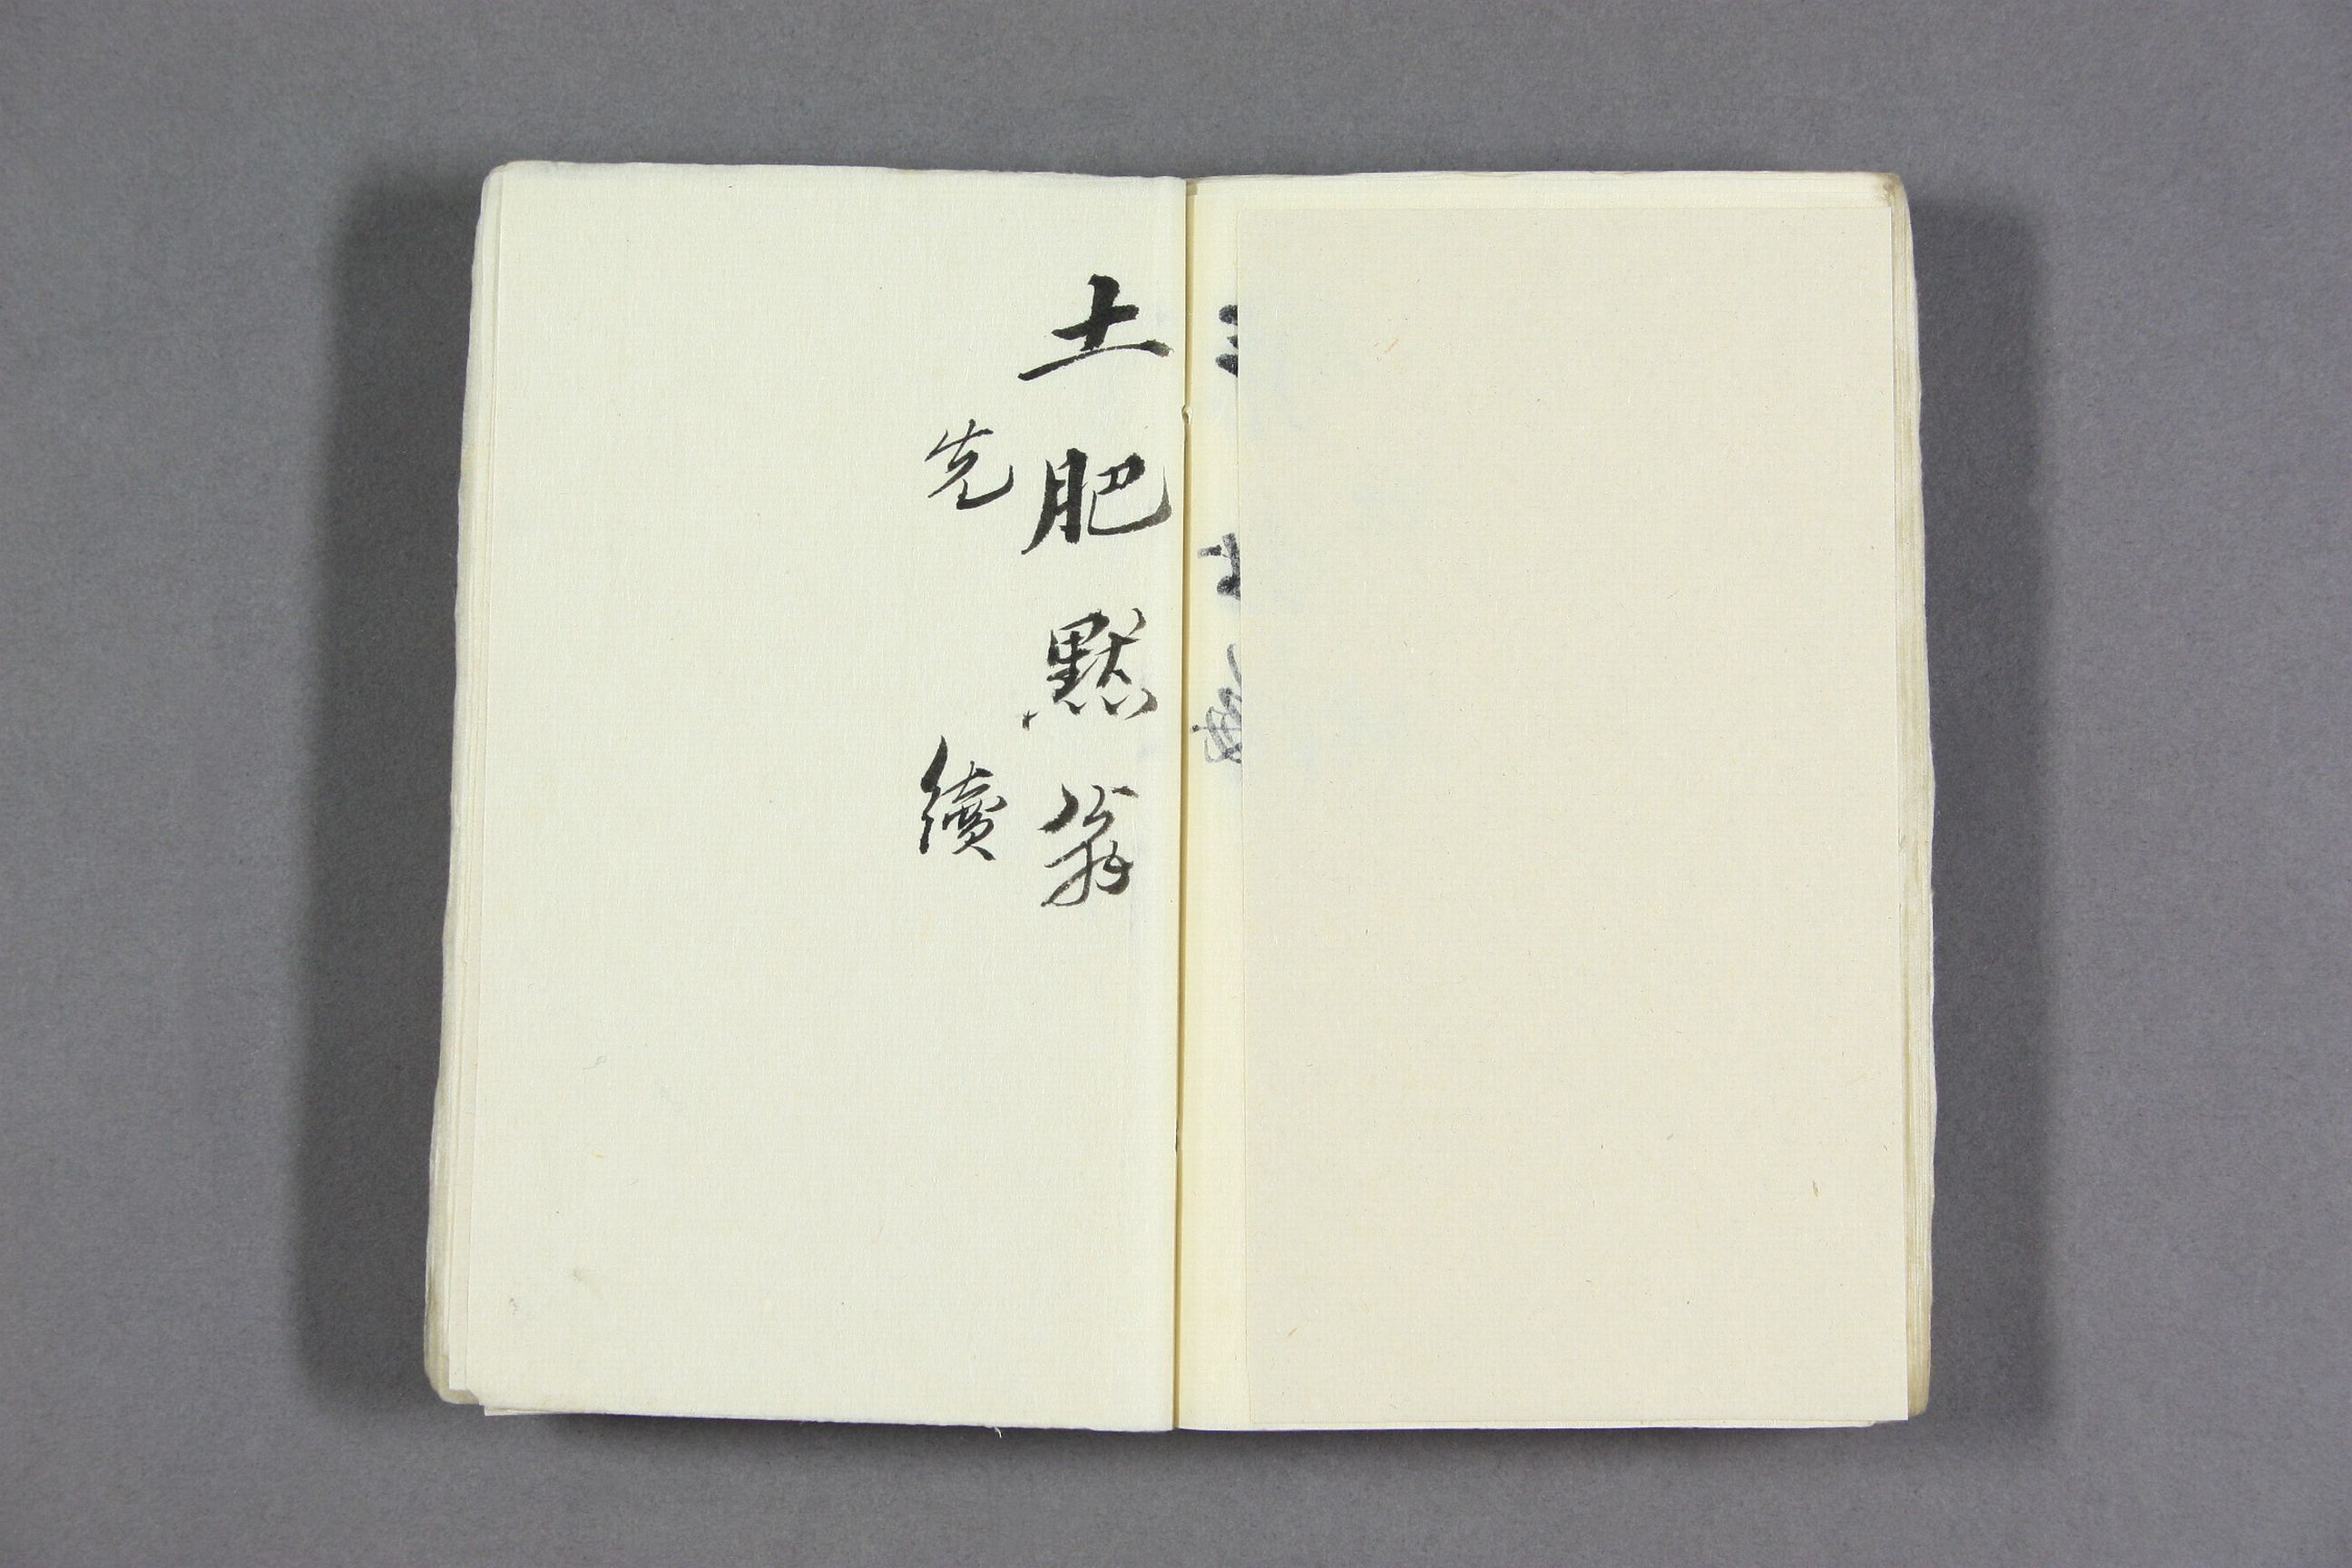 土肥黙翁
先續